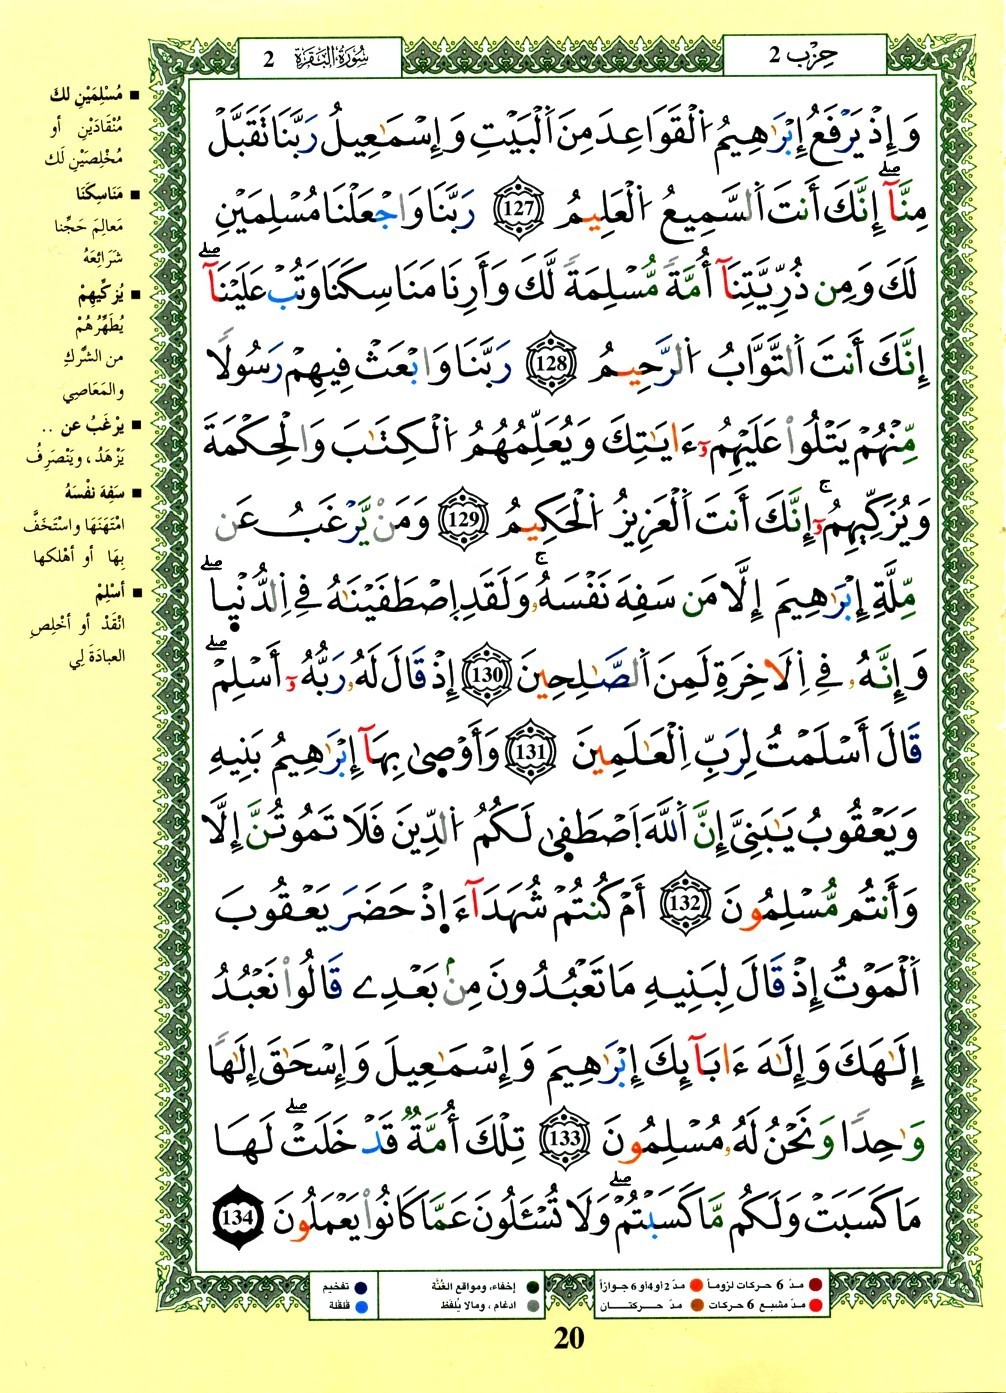 حِزْب 2
سُورَةُ البَقَرَة 2
وَإِذْ يَرْفَعُ إِبْرَٰهِيمُ اُ۬لْقَوَاعِدَ مِنَ اَ۬لْبَيْتِ وَإِسْمَٰعِيلُ رَبَّنَا تَقَبَّلْ
مِنَّآۖ إِنَّكَ أَنتَ اَ۬لسَّمِيعُ اُ۬لْعَلِيمُ 127 رَبَّنَا وَاجْعَلْنَا مُسْلِمَيْنِ
لَكَ وَمِن ذُرِّيَّتِنَآ أُمَّةٗ مُّسْلِمَةٗ لَّكَ وَأَرِنَا مَنَاسِكَنَا وَتُبْ عَلَيْنَآۖ
إِنَّكَ أَنتَ اَ۬لتَّوَّابُ اُ۬لرَّحِيمُ 128 رَبَّنَا وَابْعَثْ فِيهِمْ رَسُولٗا
مِّنْهُمْ يَتْلُواْ عَلَيْهِمُۥٓ ءَايَٰتِكَ وَيُعَلِّمُهُمُ اُ۬لْكِتَٰبَ وَالْحِكْمَةَ
وَيُزَكِّيهِمُۥٓۚ إِنَّكَ أَنتَ اَ۬لْعَزِيزُ اُ۬لْحَكِيمُ 129 وَمَنْ يَّرْغَبُ عَن
مِّلَّةِ إِبْرَٰهِيمَ إِلَّا مَن سَفِهَ نَفْسَهُۥۚ وَلَقَدِ اِ۪صْطَفَيْنَٰهُ فِے اِ۬لدُّنْي۪اۖ
وَإِنَّهُۥ فِے اِ۬لَاخِرَةِ لَمِنَ اَ۬لصَّٰلِحِينَ 130 إِذْ قَالَ لَهُۥ رَبُّهُۥٓ أَسْلِمْۖ
قَالَ أَسْلَمْتُ لِرَبِّ اِ۬لْعَٰلَمِينَ 131 وَأَوْص۪ىٰ بِهَآ إِبْرَٰهِيمُ بَنِيهِ
وَيَعْقُوبُ يَٰبَنِيَّ إِنَّ اَ۬للَّهَ اَ۪صْطَف۪ىٰ لَكُمُ اُ۬لدِّينَ فَلَا تَمُوتُنَّ إِلَّا
وَأَنتُم مُّسْلِمُونَ 132 أَمْ كُنتُمْ شُهَدَآءَ اِ۪ذْ حَضَرَ يَعْقُوبَ
اَ۬لْمَوْتُ إِذْ قَالَ لِبَنِيهِ مَا تَعْبُدُونَ مِنۢ بَعْدِے قَالُواْ نَعْبُدُ
إِلَٰهَكَ وَإِلَٰهَ ءَابَآئِكَ إِبْرَٰهِيمَ وَإِسْمَٰعِيلَ وَإِسْحَٰقَ إِلَٰهٗا
وَٰحِدٗا وَنَحْنُ لَهُۥ مُسْلِمُونَ 133 تِلْكَ أُمَّةٞ قَدْ خَلَتْۖ لَهَا
مَا كَسَبَتْ وَلَكُم مَّا كَسَبْتُمْۖ وَلَا تُسْـَٔلُونَ عَمَّا كَانُواْ يَعْمَلُونَ 134
■ مُسْلِمَيْنِ لكَ
مُنْقَادَيْنِ أو
مُخْلِصَيْنِ لَك
■ مَنَاسِكَنَا
مَعالِمَ حَجِّنا
شَرَائِعَهُ
■ يُزكِّيهِمْ
يُطَهِّرُهُمْ
من الشّركِ
والمَعَاصِي
■ يرْغَبُ عن ..
يَزْهَدُ، ويَنْصَرِفُ
■ سَفِهَ نفْسَهُ
امْتَهَنَهَا واسْتَخَفَّ
بِهَا أو أهْلكها
■ أسْلِمْ
انْقَدْ أو أخْلِصِ
العبادَةَ لِي
مدّ 6 حركات لزوماً مدّ 2 أو 4 أو 6 جوازاً
مدّ مشبع 6 حركات مدّ حركتـان
إخفاء، ومواقع الغُنَّة
ادغام، ومالا يُلفَظ
تفخيم
قلقلة
20